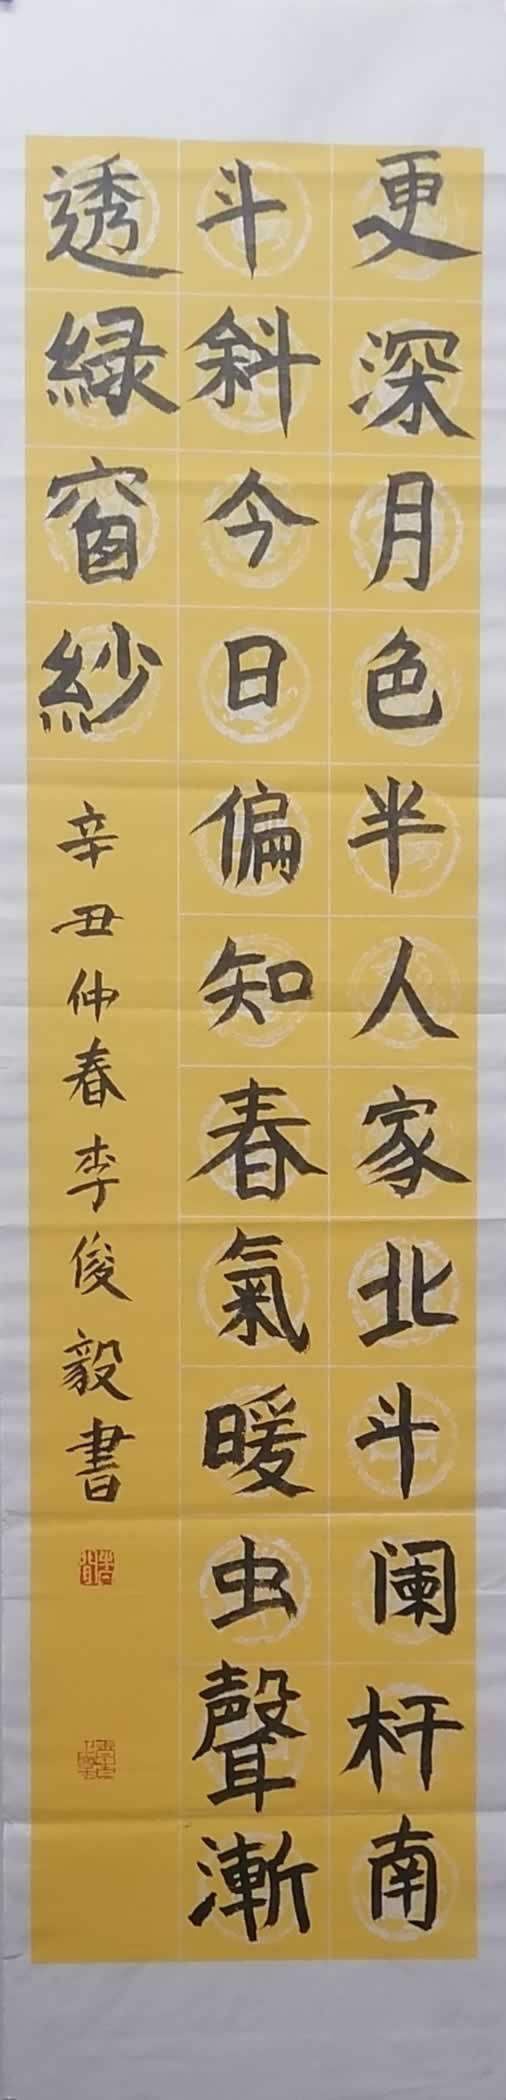 更深月色半人家北斗阑杆南
斗斜今日偏知春氣暖虫聲漸
透綠窗紗
辛丑仲春李俊毅書